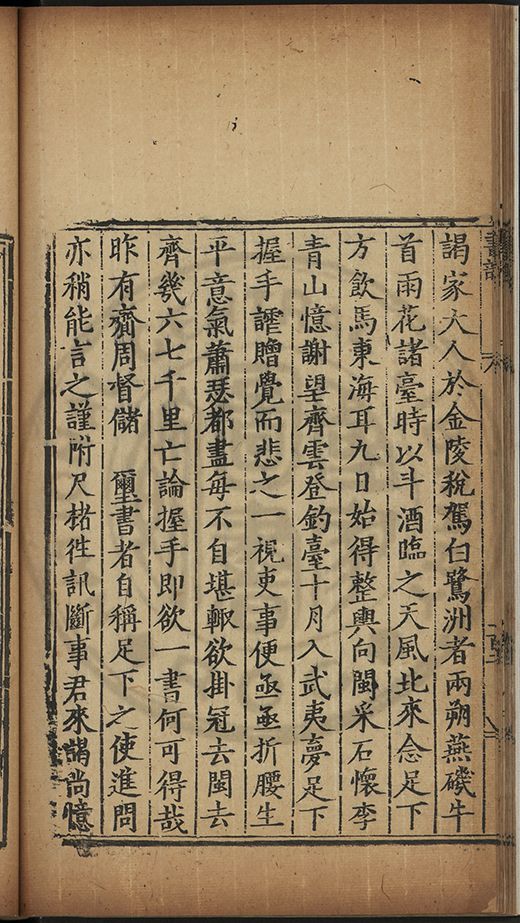 謁家大人於金陵稅駕白鷺洲者兩朔燕磯牛
首雨花諸臺時以斗酒臨之天風北來念足下
方飲馬東海耳九日始得整輿向閩采石懷李
青山憶謝望齊雲登釣臺十月入武夷夢足下
握手謔贈覺而悲之一視吏事便亟亟折腰生
平意氣蕭瑟都盡每不自堪輙欲掛冠去閩去
齊幾六七千里亡論握手即欲一書何可得哉
昨有齎周督儲　璽書者自稱足下之使進問
亦稍能言之謹附尺楮徃訊斷事君來謁尚憶